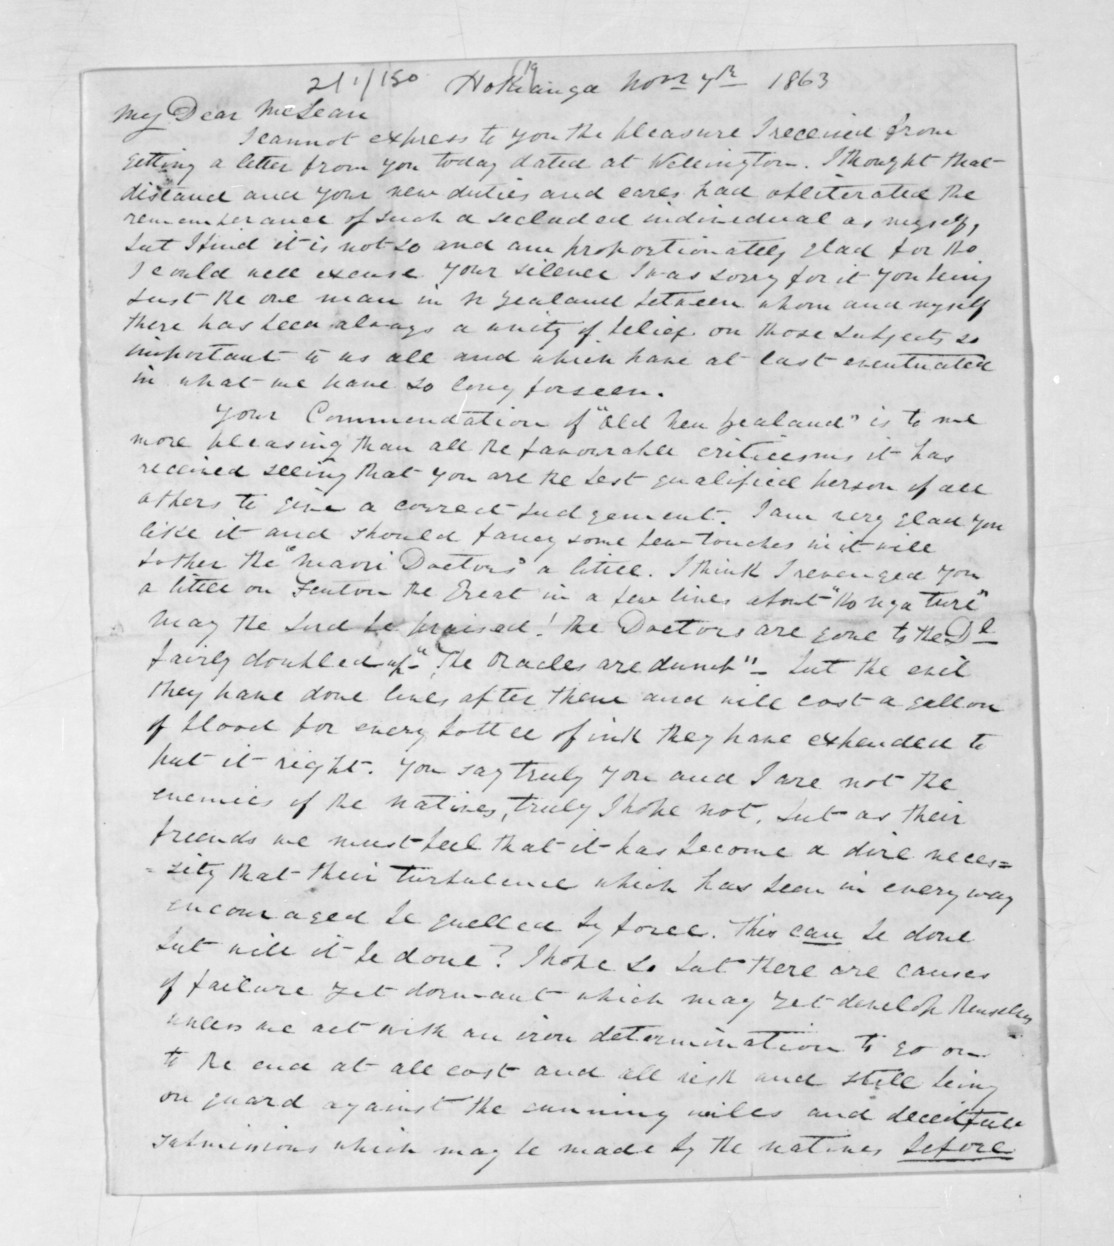 2/1/150 Hokianga Novr 7th 1863
My Dear McLean
I cannot express to you the pleasure I received from
getting a letter from you today dated at Wellington. I thought that
distand and your new duties and cares had obliterated the
rememberance of such a secluded individual as myself,
but I find it is not so and am proportionately glad for tho
I could well excuse your silence I was sorry for it you being
just the one man in N Zealand between whom and myself
there has been always a unity of belief on those subjects so
important to us all and which have at last eventuated
in what we have so long forseen.
Your Commendation of "Old New Zealand" is to me
more pleasing than all the favourable criticisms it has
received seeing that you are the best qualified person of all
others to give a correct judgement. I am very glad you
like it and should fancy some few touches in it will
bother the "Maori Doctors" a little. I think I revenged you
a little on Fenton the Great in a few lines about "Ko nga ture"
May the Lord be praised! the Doctors are gone to the Dl
fairly doubled up "The Oracles are dumb" - but the evil
they have done lives after them and will cost a gallon
of blood for every bottle of ink they have expended to
put it right. You say truly you and I are not the
enemies of the natives, truly I hope not, but as their
friends we must feel that it has become a dire neces=
=sity that their turbulence which has been in every way
encouraged be quelled by force. This can be done
but will it be done? I hope so but there are causes
of failure yet dormant which may yet develop themselves
unless we act with an iron determination to go on
to the end at all cost and all risk and still being
on guard against the cunning wiles and deceitfull
submissions which may be made by the natives before